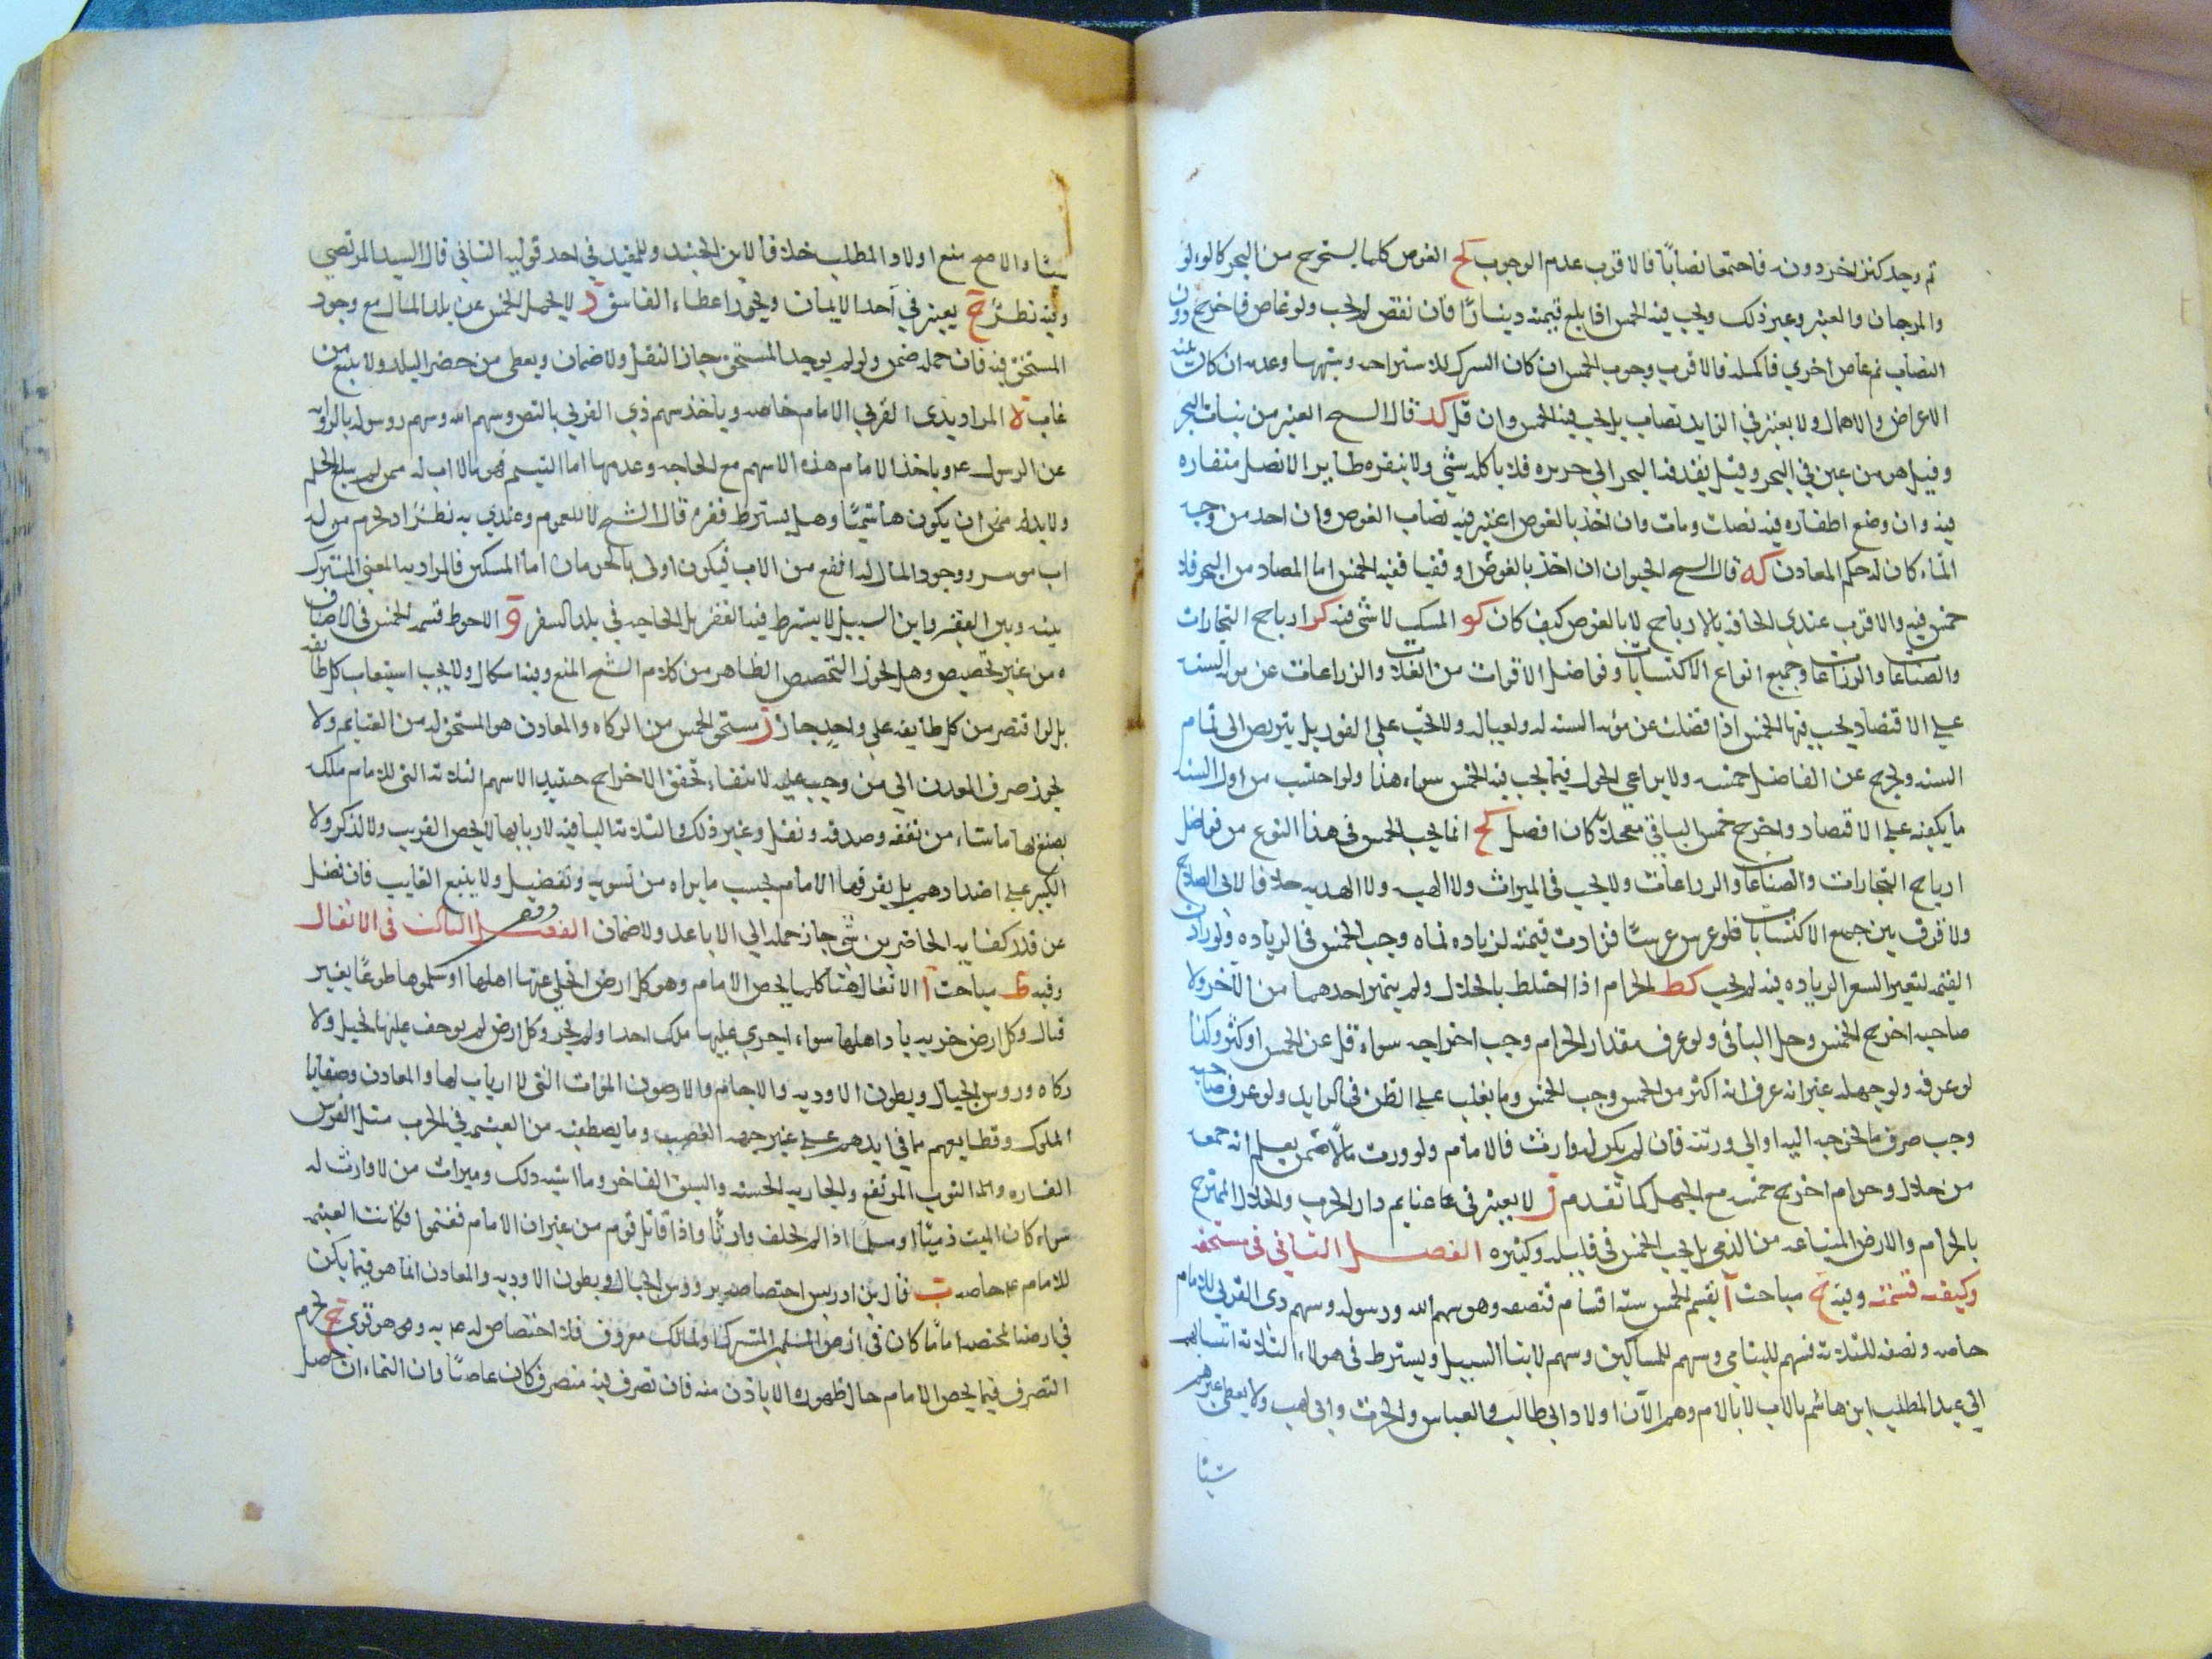 ثم وجد كنزا اخر دونه فاجتمعا نصابا فالاقرب عدم الوجوب كح الغوص كلما يستخرج من البحر كالولولو
والمرجان والعنبر وغير ذلك ويجب فيه الخمس اذا بلغ قيمته دينارا فان نقص لم يجب ولو غاص فاخرج دون
النصاب ثم غاص اخري فاكمله فالاقرب وجوب الخمس ان كان الترك للاستراحه وشبهها وعدمه ان كان بنية
الاعراض والاهمال ولا يعتبر في الزايد نصاب بل يجب فيه الخمس وان قل كد قال الشيخ العنبر من نبات البحر
وقيل هو من عين في البحر وقيل يقذفه البحر الي جزيره فلا ياكله شئ ولا ينقره طاير الا نصل منقاره
فيه وان وضع اظفاره فيه نصلت ومات وان اخذ بالغوص اعتبر فيه نصاب الغوص وان اخذ من وجه
الماء كان له حكم المعادن كه قال الشيخ الحيوان ان اخذ بالغوص او قفيا ففيه الخمس اما المصاد من البحر فلا
خمس فيه والاقرب عندي الحاقه بالارباح لا بالغوص كيف كان كو المسك لا شئ فيه كز ارباح التجارات
والصناعات والزراعات وجميع انواع الاكتسابات وفواضل الاقوات من الغلات والزراعات عن مونه السنه
علي الاقتصاد يجب فيها الخمس اذا فضلت عن مونه السنه له ولعياله ولا يجب علي الفور بل يتربص الي تمام
السنه ويخرج عن الفاضل خمسه ولا يراعي الحول فيما يجب فيه الخمس سواء هذا ولو احتسب من اول السنه
ما يكفيه علي الاقتصاد واخرج خمس الباقي معجلا كان افضل كح انما يجب الخمس في هذا النوع من فواضل
ارباح التجارات والصناعات والزراعات ولا يجب في الميراث ولا الهبه ولا الهديه خلافا لابي الصلاح
ولا فرق بين جميع الاكتسابات فلو غرس غرسا فزادت قيمته لزياده نماه وجب الخمس في الزياده ولو زادت
القيمه لتغير السعر لا لزياده فيه لم يجب كط الحرام اذا اختلط بالحلال ولم يتميز احدهما من الاخر ولا
صاحبه اخرج الخمس وحل الباقي ولو عرف مقدار الحرام وجب اخراجه سواء قل عن الخمس او كثر وكذا
لو عرفه ولو جهله غير انه عرف انه اكثر من الخمس وجب الخمس وما يغلب علي الظن في الزايد ولو عرف صاحبه
وجب صرف ما يخرجه اليه او الي ورثته فان لم يكن له وارث فالامام ولو ورث مالا ممن يعلم انه جمعه
من حلال وحرام اخرج خمسه مع الجهل كما تقدم ل لا يعتبر في غنايم دار الحرب والحلال الممتزج
بالحرام والارض المبتاعه من الذمي بل يجب الخمس في قليله وكثيره الفصل الثاني في مستحقه
وكيفيه قسمته وفيه ح مباحث ا يقسم الخمس سته اقسام فنصفه وهو سهم الله ورسوله وسهم ذي القربي للامام
خاصه ونصفه للثلاثه فسهم لليتامي وسهم للمساكين وسهم لابناء السبيل ويشترط في هولاء الثلاثه انتسابهم
الي عبد المطلب ابن هاشم بالاب لا بالام وهم الآن اولاد ابي طالب والعباس والحرث وابي لهب ولا يعطي غيرهم
شيئا
شيئا والاصح منع اولاد المطلب خلافا لابن الجنيد وللمفيد في احد قوليه الثاني قال السيد المرتضي
وفيه نظر ج يعتبر في آخذه الايمان ويجوز اعطاء الفاسق د لا يحمل الخمس عن بلد المال مع وجود
المستحق فيه فان حمله ضمن ولو لم يوجد المستحق جاز النقل ولا ضمان ويعطي من حضر البلد ولا يتبع من
غاب ه المراد بذي القربي الامام خاصه وياخذ سهم ذي القربي بالنص وسهم الله وسهم رسوله بالوراثه
عن الرسول ع وياخذ الامام هذه الاسهم مع الحاجه وعدمها اما اليتيم فهو الاب له ممن لم يبلغ الحلم
ولا بد ان يكون هاشميا وهل يشترط فقره قال الشيخ لا للعموم وعندي فيه نظر اذ يحرم من له
اب موسر ووجود المال له انفع من الاب فيكون اولي بالحرمان اما المسكين فالمراد به المعني المشترك
بينه وبين الفقير وابن السبيل لا يشترط فيه الفقر بل الحاجه في بلد السفر و الاحوط قسمه الخمس في الاصناف
من غير تخصيص وهل يجوز التخصيص الظاهر من كلام الشيخ المنع وفيه اشكال ولا يجب استيعاب كل طايفه
بل لو اقتصر من كل طايفه علي واحد جاز ز مستحق الخمس من الركاز والمعادن هو المستحق له من الغنايم ولا
يجوز صرف المعدن الي من وجب عليه لانتفاء تحقق الاخراج حينيذ الاسهم الثلاثه التي للامام ملكه
يصنع بها ما شاء من نفقه وصدقه ونفل وغير ذلك والثلاثه الباقيه لاربابها لا يخص القريب ولا الذكر ولا
الكبير علي اضدادهم بل يفرقها الامام بحسب ما يراه من تسويه وتفضيل ولا يتبع الغايب فان فضل
عن قدر كفايه الحاضرين شئ جاز حمله الي الاباعد ولا ضمان الفصل الثالث في الانفال
وفيه ط مباحث ا الانفال هنا كلما يخص الامام وهو كل ارض انجلي عنها اهلها او سلموها طوعا بغير
قتال وكل ارض خربه باد اهلها سواء اجري عليها ملك احد او لم يجر وكل ارض لم يوجف عليها بخيل ولا
ركاب وروس الجبال وبطون الاوديه والاجام والارضون الموات التي لا ارباب لها والمعادن وصفايا
الملوك وقطايعهم مما في ايديهم علي غير جهه الغصب وما يصطفيه من الغنيمه في الحرب مثل الفرس
الفاره والثوب المرتفع والجاريه الحسنه والسيف الفاخر وما اشبه ذلك وميراث من لا وارث له
سواء كان الميت ذميا او مسلما اذا لم يخلف وارثا واذا قاتل قوم من غير اذن الامام فغنموا فكانت الغنيمه
للامام ع خاصه ب قال ابن ادريس اختصاصه برووس الجبال وبطون الاوديه والمعادن انما هو فيما يكون
في ارضه المختصه اما ما كان في ارض المسلمين المشتركه او لمالك معروف فلا اختصاص له ع به وهو قوي ج يحرم
التصرف فيما يخص الامام حال ظهوره الا باذن منه فان تصرف فيه متصرف كان غاصبا وان النماء ان حصل